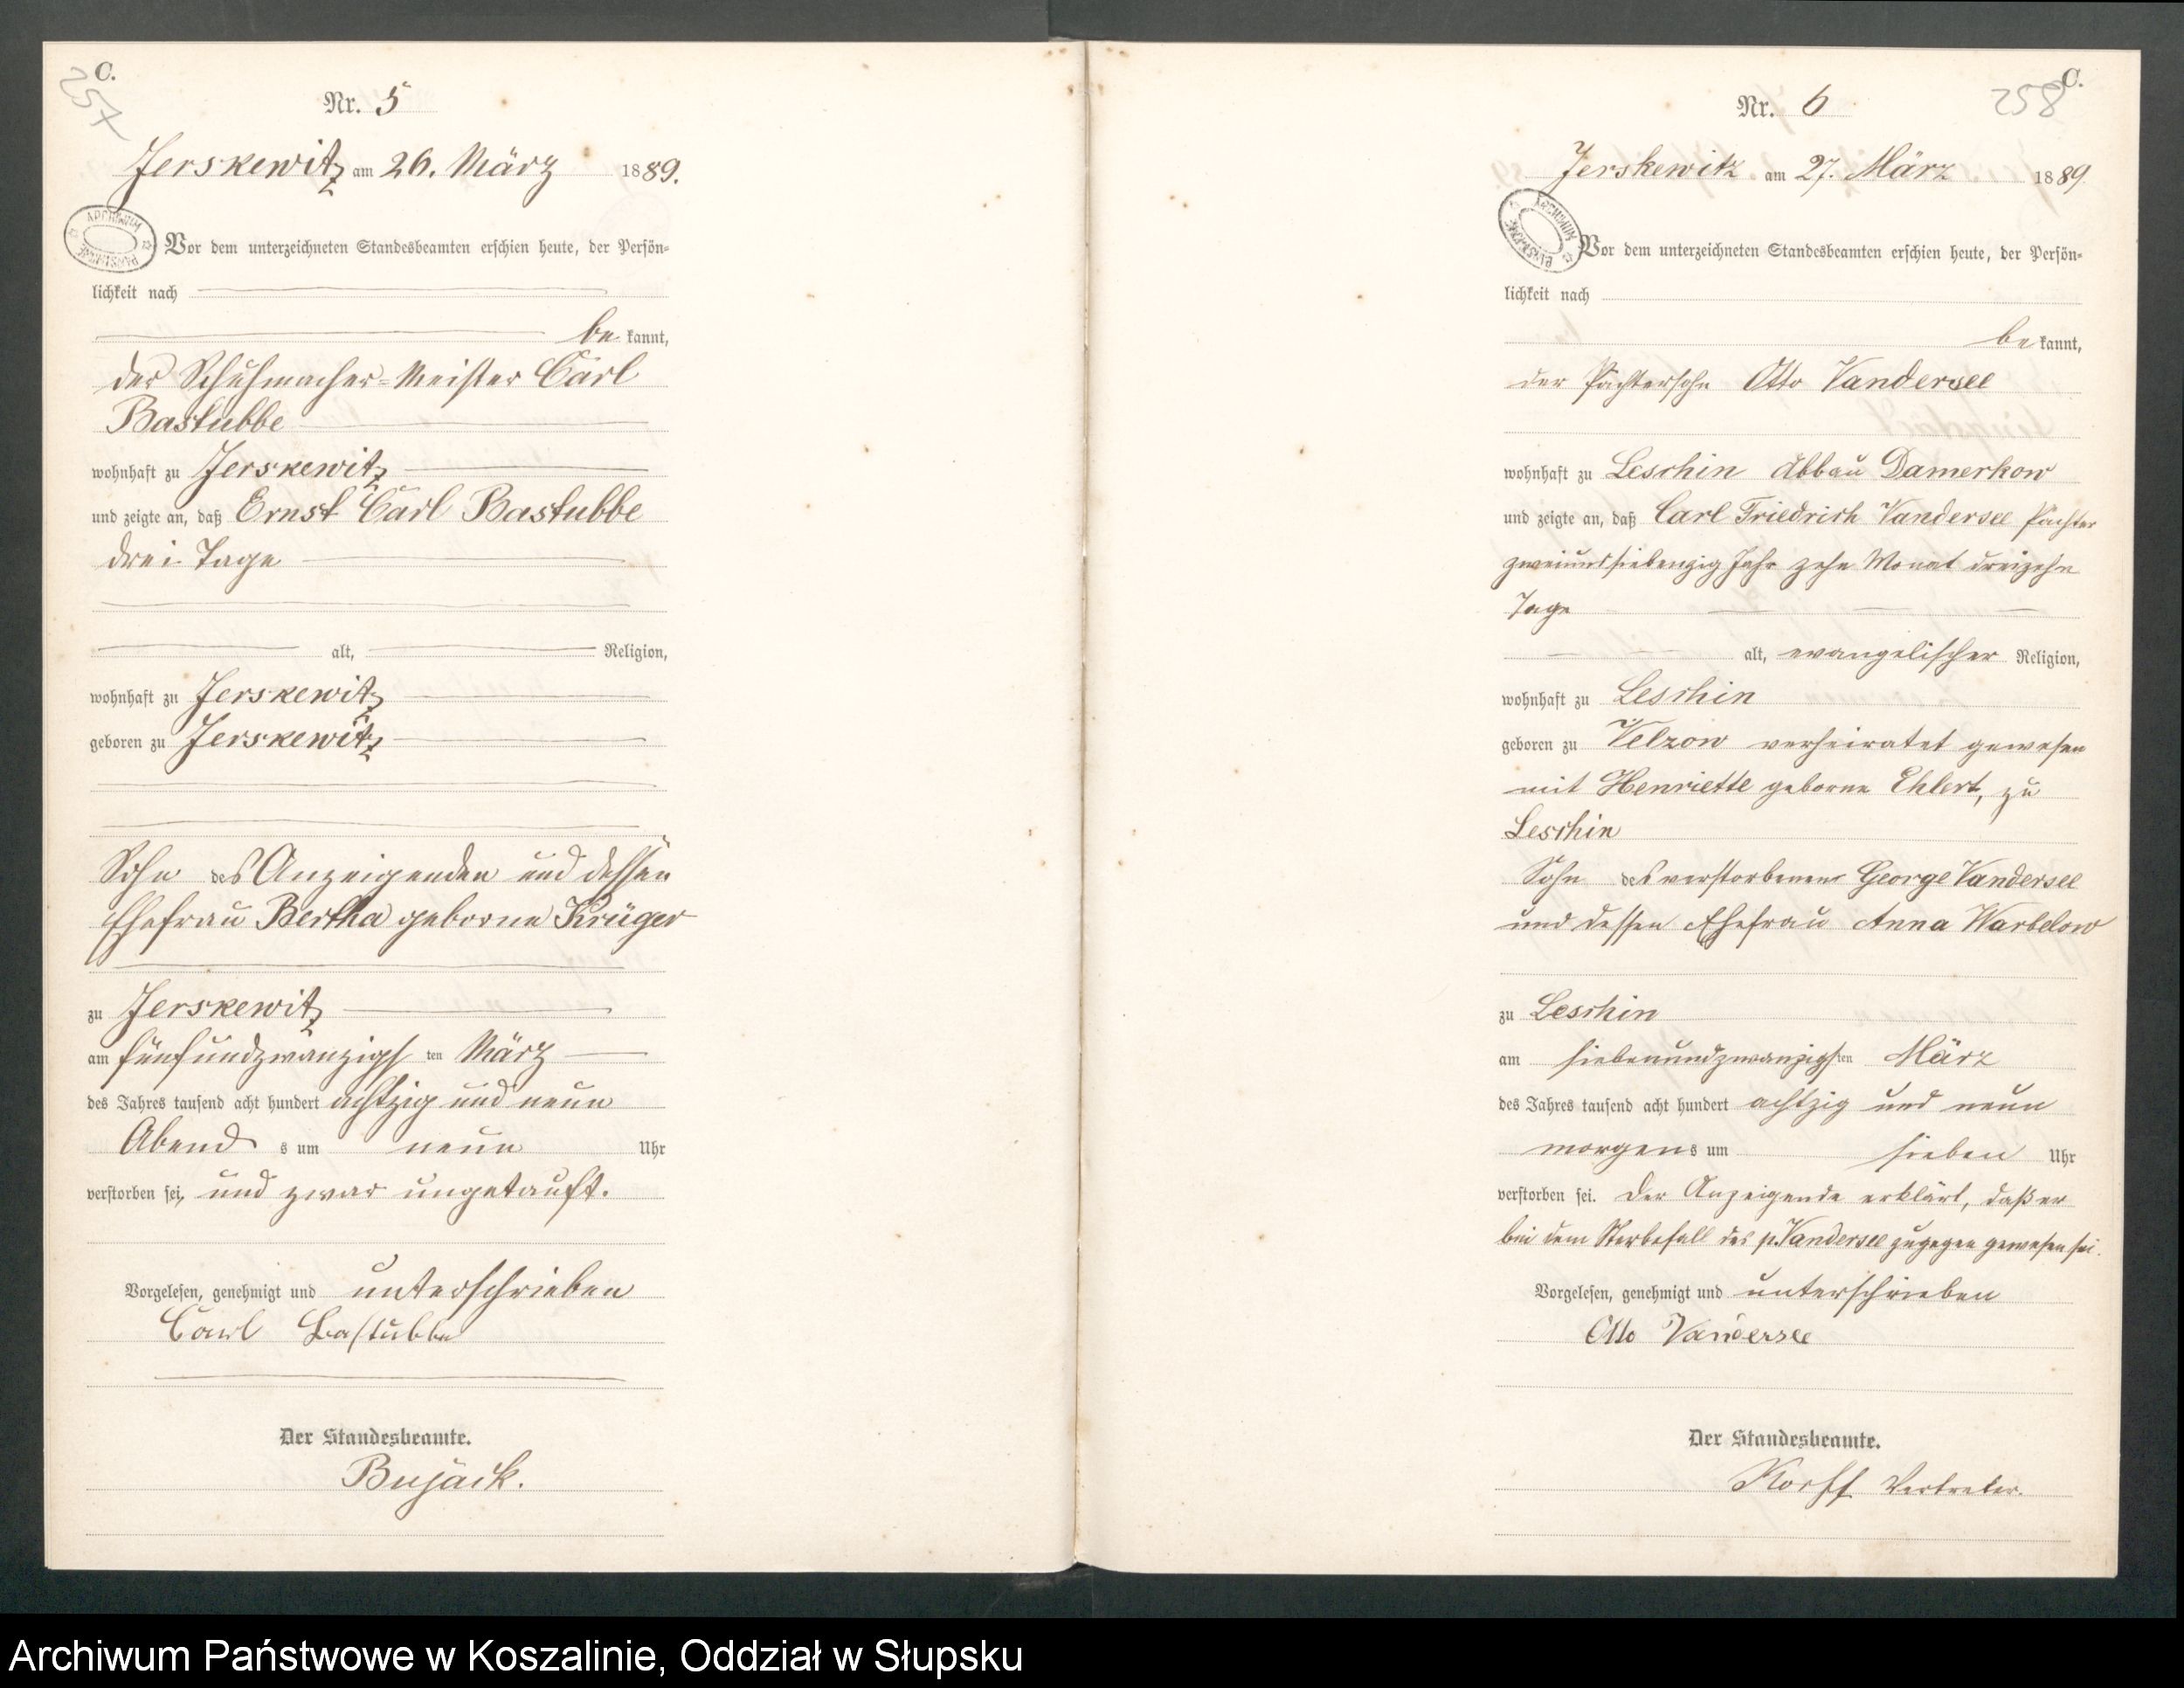 C.
257
Nr. 5
Jerskewitz am 26. März 1889.
ARCHIWUM PAŃSTWOWE
Vor dem unterzeichneten Standesbeamten erschien heute, der Persön-
lichkeit nach
be kannt,
der Schuhmacher-Meister Carl
Bastubbe
wohnhaft zu Jerskewitz
und zeigte an, daß Ernst Carl Bastubbe
drei Tage
alt, Religion,
wohnhaft zu Jerskewitz
geboren zu Jerskewitz
Sohn des Anzeigenden und dessen
Ehefrau Bertha geborne Krüger
zu Jerskewitz
am fünfundzwanzigs ten März
des Jahres tausend acht hundert achtzig und neun
Abend s um neun Uhr
verstorben sei, und zwar ungetauft.
Vorgelesen, genehmigt und unterschrieben
Carl Bastubbe
Der Standesbeamte.
Bujack.
C.
258
Nr. 6
Jerskewitz am 27. März 1889.
ARCHIWUM PAŃSTWOWE
Vor dem unterzeichneten Standesbeamten erschien heute, der Persön-
lichkeit nach
be kannt,
der Pächtersohn Otto Vandersee
wohnhaft zu Leschin Abbau Damerkow
und zeigte an, daß Carl Friedrich Vandersee Pächter
zweiundsiebenzig Jahr zehn Monat dreizehn
Tage
alt, evangelischer Religion,
wohnhaft zu Leschin
geboren zu Velzow verheiratet gewesen
mit Henriette geborne Ehlert, zu
Leschin
Sohn des verstorbenen George Vandersee
und dessen Ehefrau Anna Warbelow
zu Leschin
am siebenundzwanzigsten März
des Jahres tausend acht hundert achtzig und neun
morgens um sieben Uhr
verstorben sei. Der Anzeigende erklärt, daß er
bei dem Sterbefall des p. Vandersee zugegen gewesen sei.
Vorgelesen, genehmigt und unterschrieben
Otto Vandersee
Der Standesbeamte.
Korff Vertreter.
Archiwum Państwowe w Koszalinie, Oddział w Słupsku